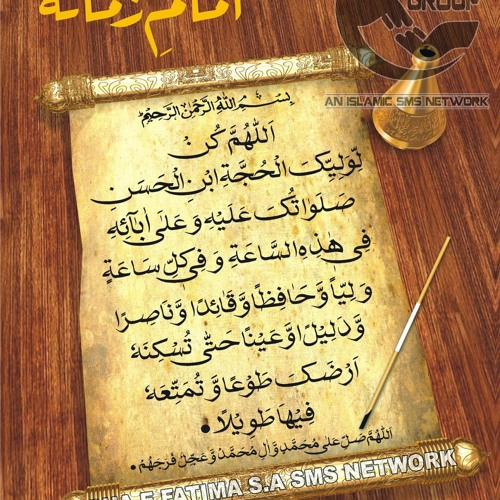 امامِ زمانہؑ
GROUP
AN ISLAMIC SMS NETWORK
بِسْمِ اللهِ الرَّحْمٰنِ الرَّحِيْمِ
اَللّٰهُمَّ كُنْ
لِّوَلِيِّكَ الْحُجَّةِ ابْنِ الْحَسَنِ
صَلَوَاتُكَ عَلَيْهِ وَعَلٰى اٰبَائِهٖ
فِىْ هٰذِهِ السَّاعَةِ وَفِىْ كُلِّ سَاعَةٍ
وَلِيًّا وَّحَافِظًا وَّقَائِدًا وَّنَاصِرًا
وَّدَلِيْلًا وَّعَيْنًا حَتّٰى تُسْكِنَهٗ
اَرْضَكَ طَوْعًا وَّتُمَتِّعَهٗ
فِيْهَا طَوِيْلًا •
اَللّٰهُمَّ صَلِّ عَلٰى مُحَمَّدٍ وَّاٰلِ مُحَمَّدٍ وَّعَجِّلْ فَرَجَهُمْ •
FATIMA S.A SMS NETWORK